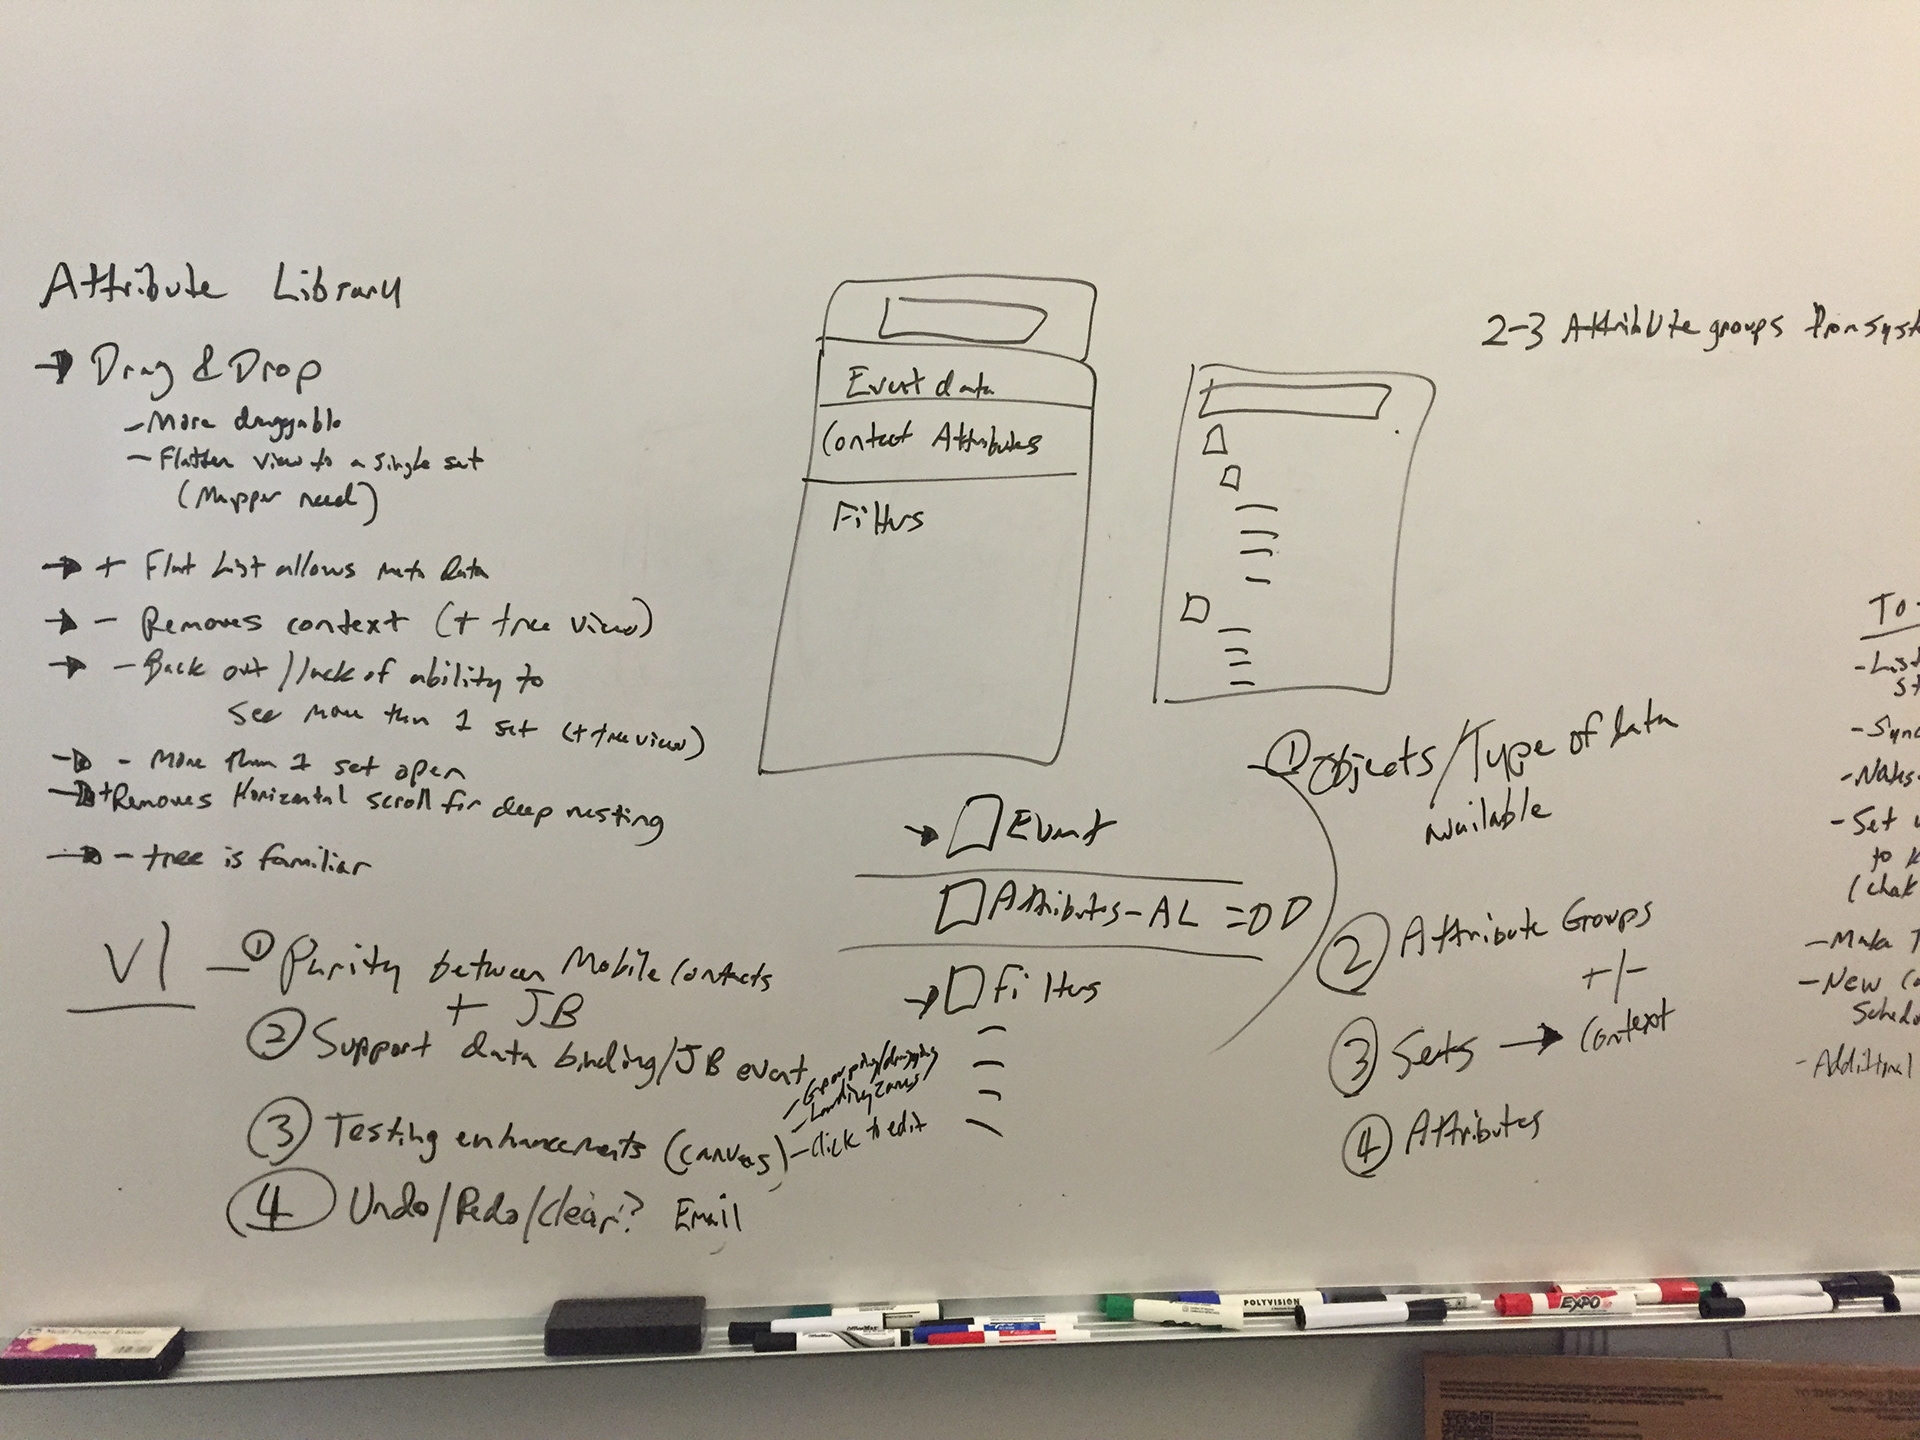 Attribute Library
→ Drag & Drop
- More draggable
- Flatten view to a single set
(Mapper need)
→ + Flat List allows meta data
→ - Removes context (+ tree view)
→ - Back out / lack of ability to
see more than 1 set (+ tree view)
→ - More than 1 set open
→ + Removes Horizontal scroll for deep nesting
→ - tree is familiar
V1
- ① Purity between Mobile Contacts
+ JB
② Support data binding/JB event
③ Testing enhancements (canvas)
- Grouping/dragging
- Landing zones
- Click to edit
④ Undo/Redo/Clear? Email
Event data
Contact Attributes
Filters
→ Event
Attributes - AL = DD
→ Filters
2-3 Attribute groups from syst
- ① Objects/Type of data
available
② Attribute Groups
+/-
③ Sets → Context
④ Attributes
TO-
- List
st
- Sync
- Notes
- Set u
to k
(chat
- Make T
- New Co
Schedu
- Additional
POLYVISION
EXPO
OfficeMax